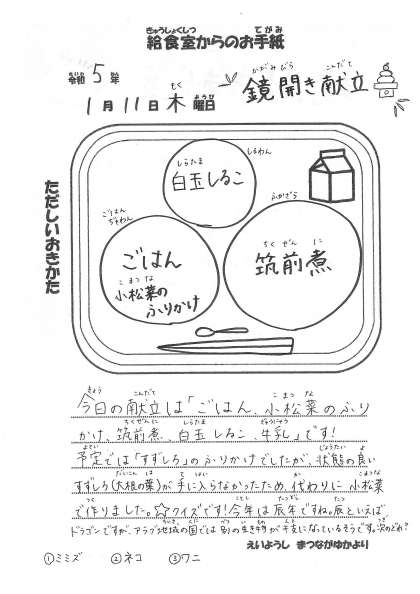 きゅうしょくしつ てがみ
給食室からのお手紙
れいわ ねん
令和 5 年
かがみびら こんだて
鏡開き献立
もく ようび
1月11日 木 曜日
ただしいおきかた
しらたま
白玉しるこ
しるわん
ごはん
ぢゃわん
ごはん
こまつな
小松菜の
ふりかけ
ふかざら
ちくぜんに
筑前煮
きょう こんだて こまつな
今日の献立は「ごはん、小松菜のふり
ちくぜんに しらたま ぎゅうにゅう
かけ、筑前煮、白玉しるこ、牛乳」です!
よてい じょうたい よ
予定では「すずしろ」のふりかけでしたが、状態の良い
だいこん は て はい か こまつな
すずしろ(大根の葉)が手に入らなかったため、代わりに小松菜
つく ことし たつどし たつ
で作りました。☆クイズです!今年は辰年ですね。辰といえば
ちいき くに べつ い もの えと
ドラゴンですが、アラブ地域の国では別の生き物が干支になっているそうです。次のどれ?
えいようし まつながゆかより
①ミミズ ②ネコ ③ワニ